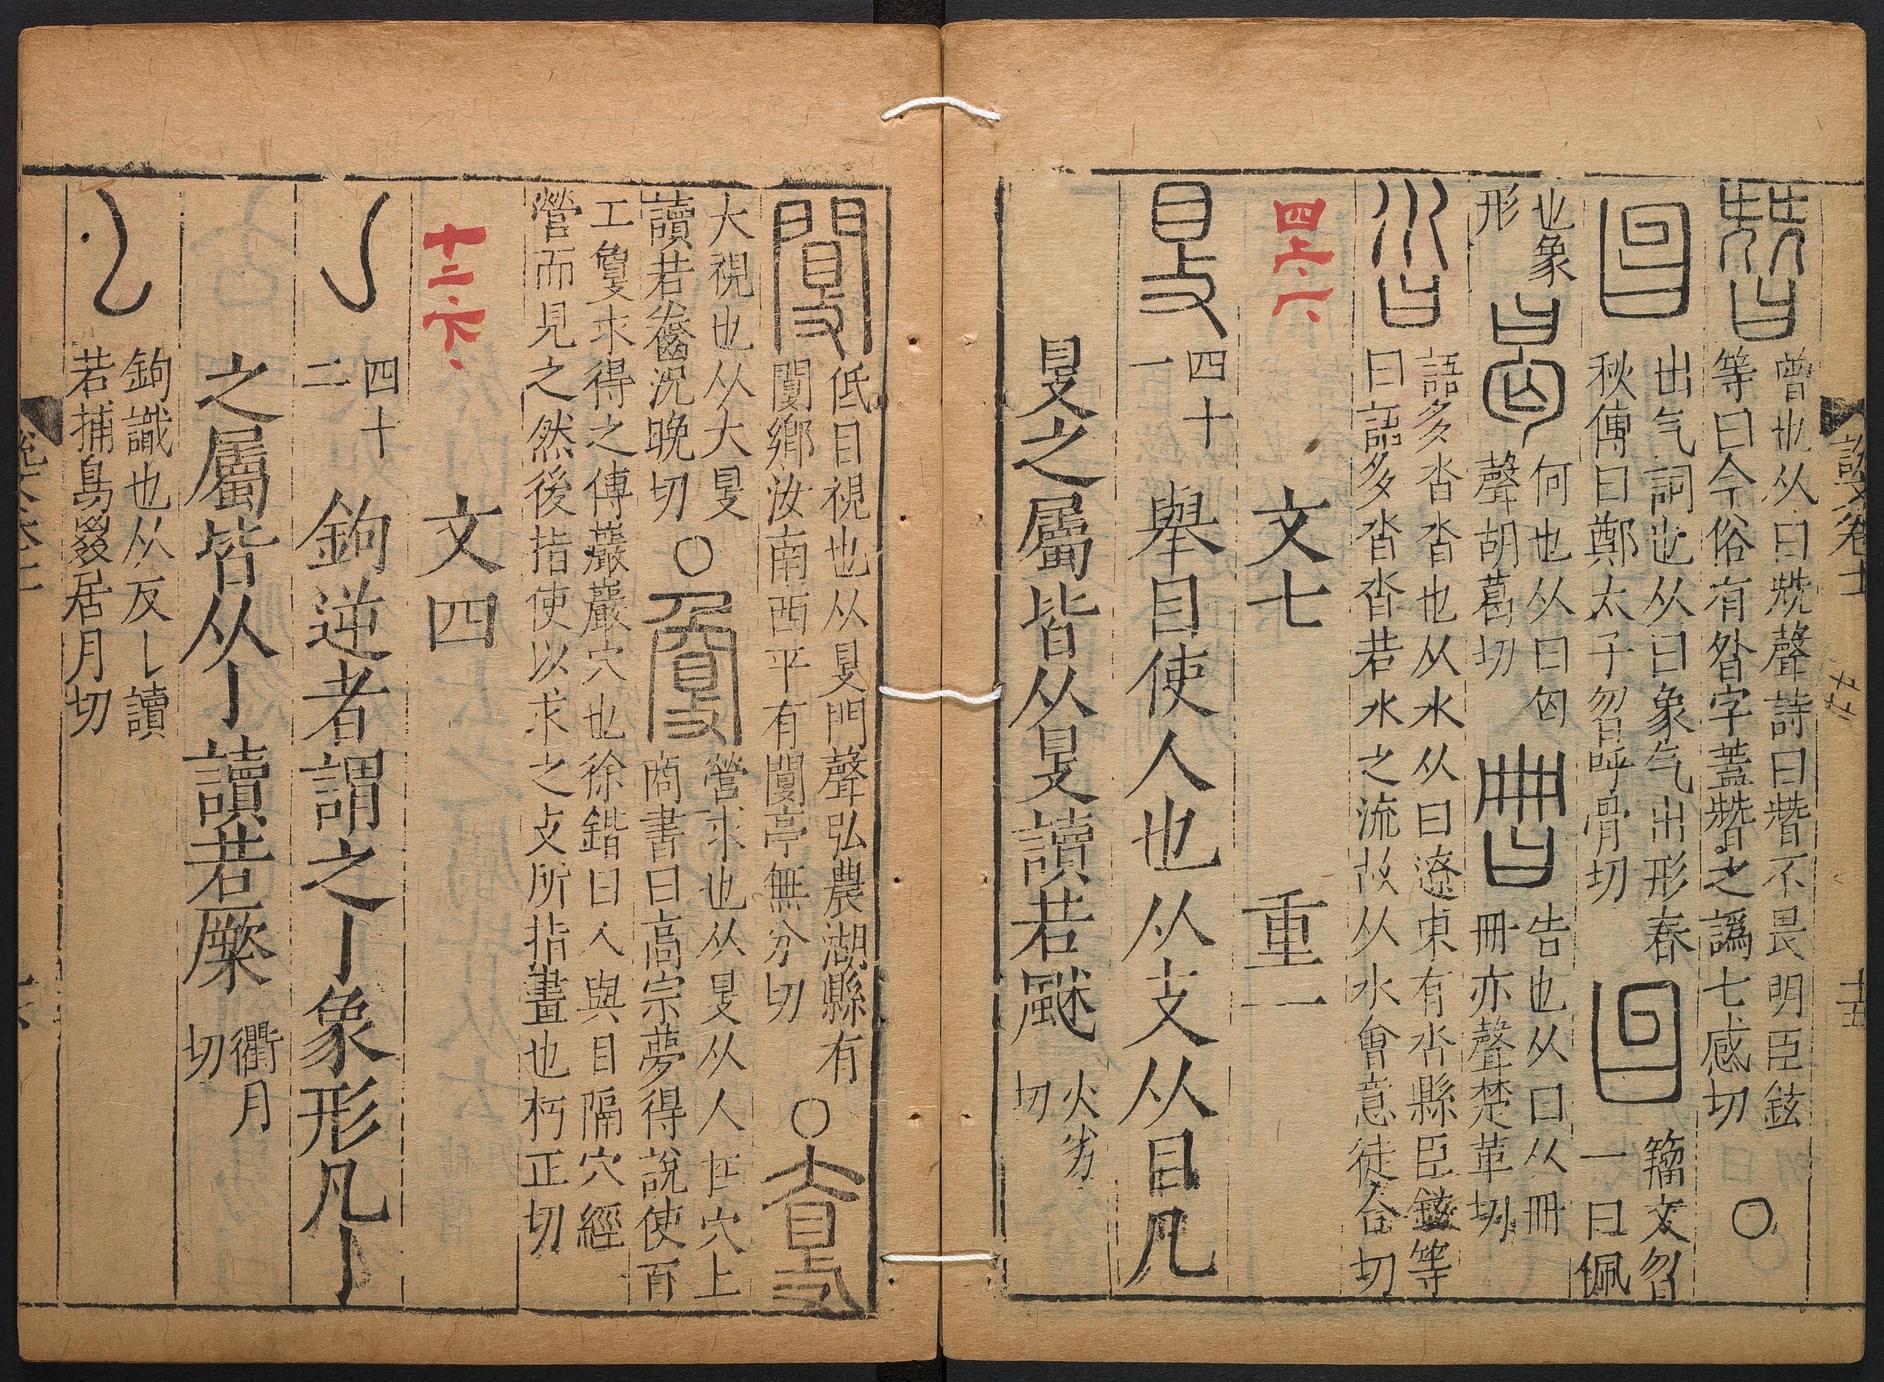 說文卷十
十五
朁 曾也从曰兓聲詩曰朁不畏明臣鉉
等曰今俗有昝字蓋朁之譌七感切 ○
曶 出气詞也从曰象气出形春
秋傳曰鄭太子曶呼骨切
曶 籀文曶
一曰佩
也象
形
曷 何也从曰匃
聲胡葛切
𠕋曰 告也从曰从冊
冊亦聲楚革切
沓 語多沓沓也从水从曰遼東有沓縣臣鉉等
曰語多沓沓若水之流故从水會意徒合切
四上、八 文七 重一
𥄎 四十一 舉目使人也从攴从目凡
𥄎之屬皆从𥄎讀若䫻 火劣切
闅 低目視也从𥄎門聲弘農湖縣有
闅鄉汝南西平有闅亭無分切 ○ 𡙁
大視也从大𥄎
讀若齤況晚切 ○
敻 營求也从𥄎从人在穴上
商書曰高宗夢得說使百
工敻求得之傅巖巖穴也徐鍇曰人與目隔穴經
營而見之然後指使以求之攴所指畫也朽正切
十二、下、 文四
亅 四十二 鉤逆者謂之亅象形凡亅
之屬皆从亅讀若橜 衢月切
𠄌 鉤識也从反亅讀
若捕鳥罬居月切